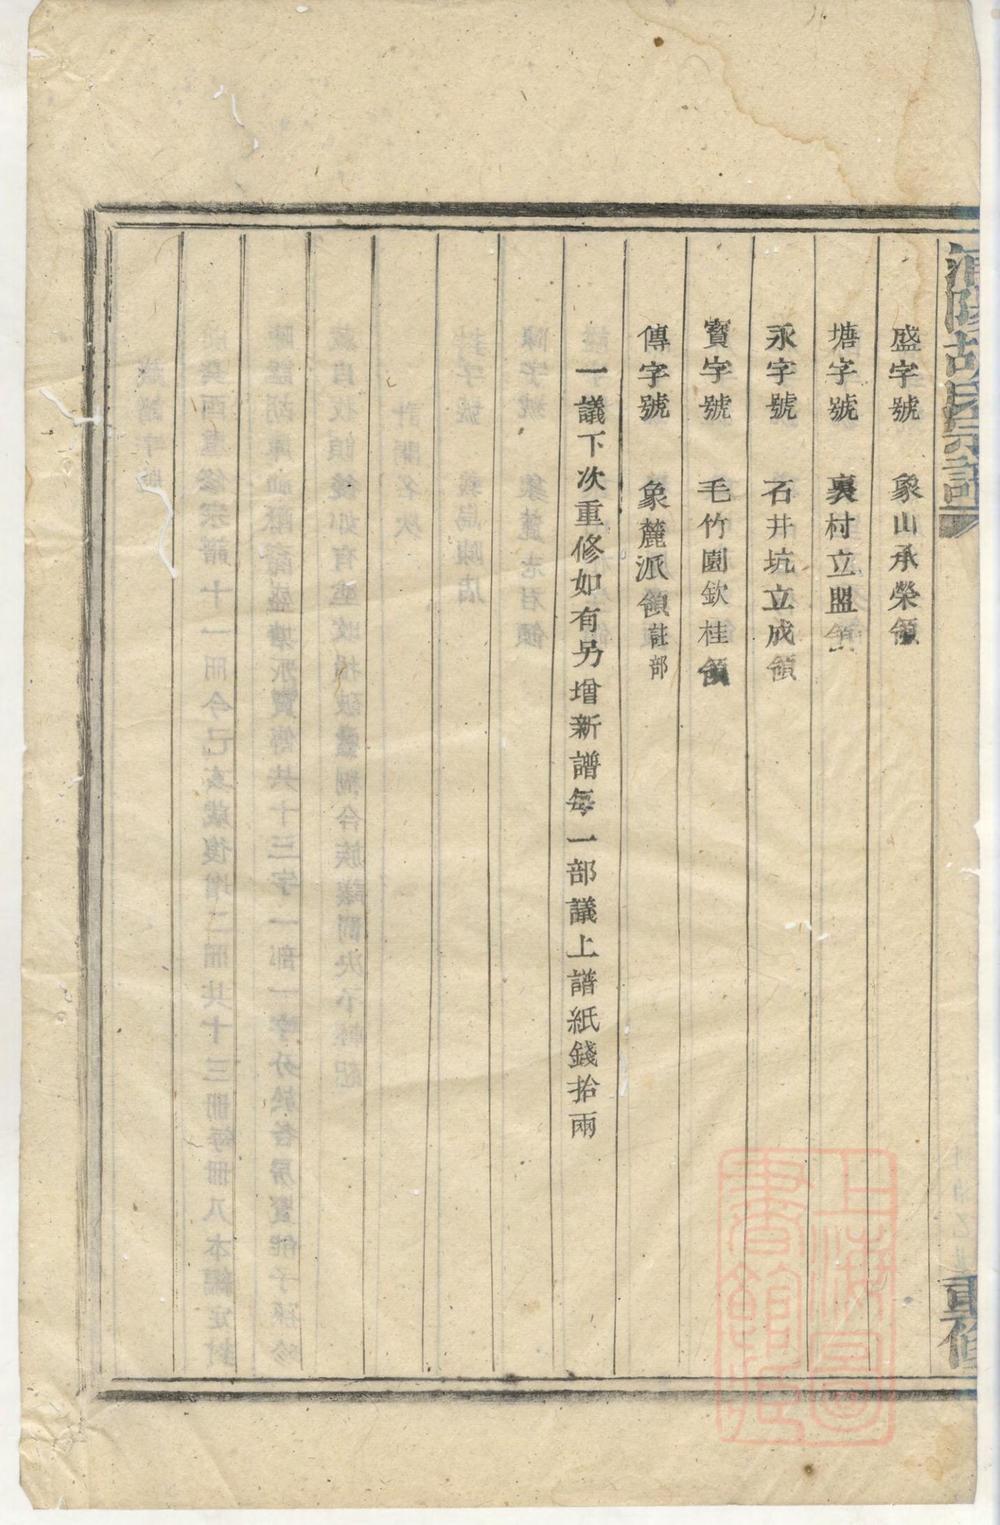 盛字號 象山承榮領
塘字號 裏村立盟領
永字號 石井坑立成領
寳字號 毛竹園欽桂領
傳字號 象麓派領註部
一議下次重修如有另增新譜每一部議上譜紙錢拾兩
胡氏宗譜
重修
上海圖書館藏